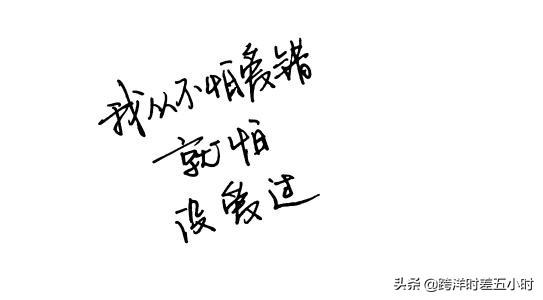 我从不怕爱错
就怕
没爱过
头条 @跨洋时差五小时